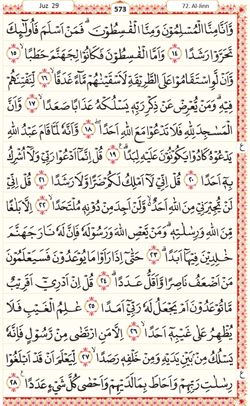 Juz 29 573 72. Al-Jinn
وَّاَنَّا مِنَّا الْمُسْلِمُوْنَ وَمِنَّا الْقٰسِطُوْنَۗ فَمَنْ اَسْلَمَ فَاُولٰۤىِٕكَ
تَحَرَّوْا رَشَدًا ﴿١٤﴾ وَاَمَّا الْقٰسِطُوْنَ فَكَانُوْا لِجَهَنَّمَ حَطَبًا ﴿١٥﴾
وَّاَنْ لَّوِ اسْتَقَامُوْا عَلَى الطَّرِيْقَةِ لَاَسْقَيْنٰهُمْ مَّاۤءً غَدَقًا ﴿١٦﴾ لِّنَفْتِنَهُمْ
فِيْهِۗ وَمَنْ يُّعْرِضْ عَنْ ذِكْرِ رَبِّهٖ يَسْلُكْهُ عَذَابًا صَعَدًا ﴿١٧﴾ وَّاَنَّ
الْمَسٰجِدَ لِلّٰهِ فَلَا تَدْعُوْا مَعَ اللّٰهِ اَحَدًا ﴿١٨﴾ وَّاَنَّهٗ لَمَّا قَامَ عَبْدُ اللّٰهِ
يَدْعُوْهُ كَادُوْا يَكُوْنُوْنَ عَلَيْهِ لِبَدًا ﴿١٩﴾ قُلْ اِنَّمَآ اَدْعُوْا رَبِّيْ وَلَآ اُشْرِكُ
بِهٖٓ اَحَدًا ﴿٢٠﴾ قُلْ اِنِّيْ لَآ اَمْلِكُ لَكُمْ ضَرًّا وَّلَا رَشَدًا ﴿٢١﴾ قُلْ اِنِّيْ
لَنْ يُّجِيْرَنِيْ مِنَ اللّٰهِ اَحَدٌ وَّلَنْ اَجِدَ مِنْ دُوْنِهٖ مُلْتَحَدًا ﴿٢٢﴾ اِلَّا بَلٰغًا
مِّنَ اللّٰهِ وَرِسٰلٰتِهٖۗ وَمَنْ يَّعْصِ اللّٰهَ وَرَسُوْلَهٗ فَاِنَّ لَهٗ نَارَ جَهَنَّمَ
خٰلِدِيْنَ فِيْهَآ اَبَدًا ﴿٢٣﴾ حَتّٰىٓ اِذَا رَاَوْا مَا يُوْعَدُوْنَ فَسَيَعْلَمُوْنَ
مَنْ اَضْعَفُ نَاصِرًا وَّاَقَلُّ عَدَدًا ﴿٢٤﴾ قُلْ اِنْ اَدْرِيْٓ اَقَرِيْبٌ
مَّا تُوْعَدُوْنَ اَمْ يَجْعَلُ لَهٗ رَبِّيْٓ اَمَدًا ﴿٢٥﴾ عٰلِمُ الْغَيْبِ فَلَا
يُظْهِرُ عَلٰى غَيْبِهٖٓ اَحَدًا ﴿٢٦﴾ اِلَّا مَنِ ارْتَضٰى مِنْ رَّسُوْلٍ فَاِنَّهٗ
يَسْلُكُ مِنْۢ بَيْنِ يَدَيْهِ وَمِنْ خَلْفِهٖ رَصَدًا ﴿٢٧﴾ لِّيَعْلَمَ اَنْ قَدْ اَبْلَغُوْا
رِسٰلٰتِ رَبِّهِمْ وَاَحَاطَ بِمَا لَدَيْهِمْ وَاَحْصٰى كُلَّ شَيْءٍ عَدَدًا ﴿٢٨﴾